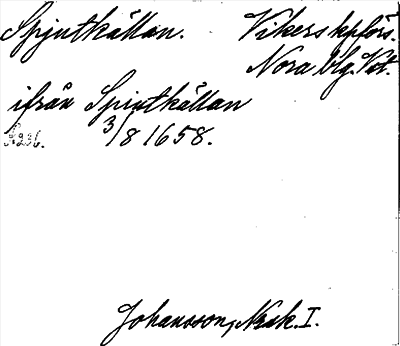 Spjutkällan. Vikers kpförs.
Nora blg. Vstm.
ifrån Spiutkällan
3/8 1658.
Johansson, Nssk. I.